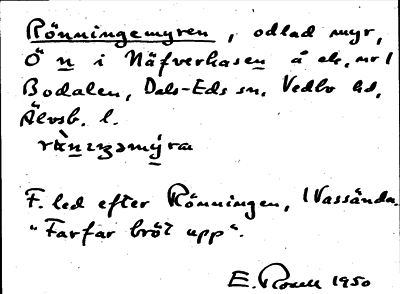 Rönningemyren, odlad myr,
Ö n i Näfverkasen å ek. nr 1
Bodalen, Dals-Eds sn. Vedbo hd,
Älvsb. l.
F. led efter Rönningen, 1 Vassända.
"Farfar bröt upp".
E. Rosell 1950